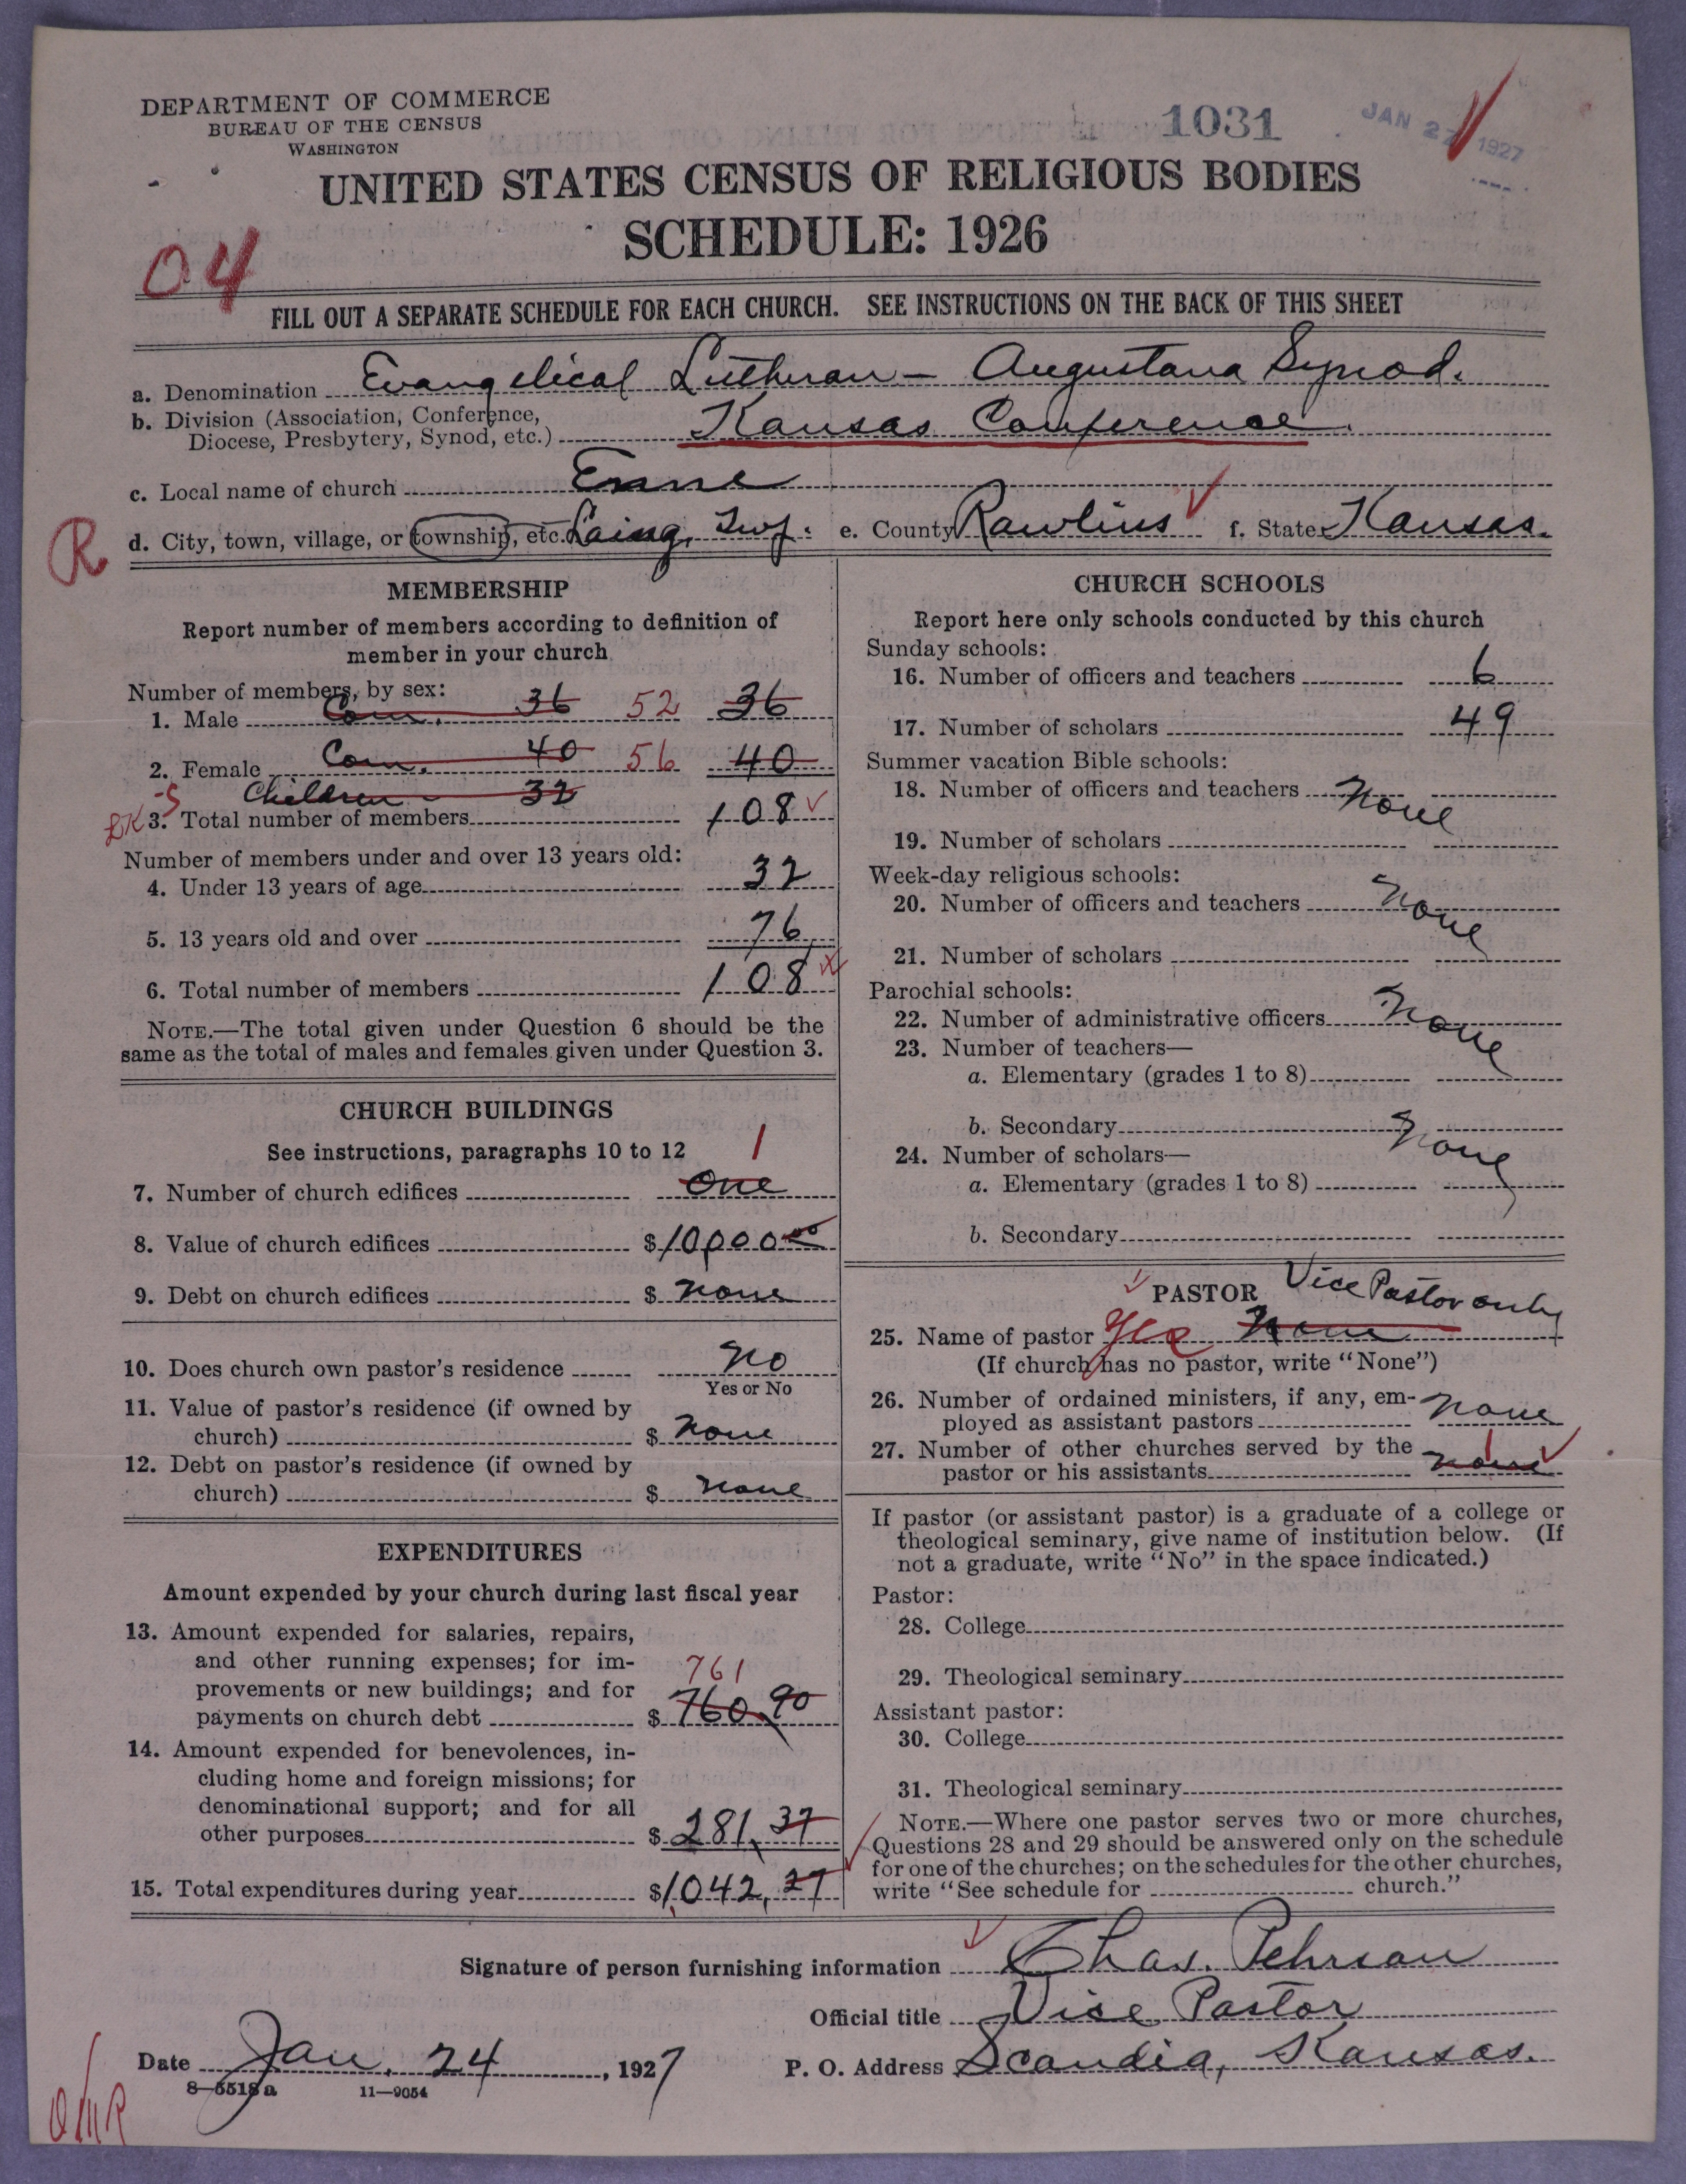 DEPARTMENT OF COMMERCE
BUREAU OF THE CENSUS
WASHINGTON
1031
JAN 27 1927
UNITED STATES CENSUS OF RELIGIOUS BODIES
SCHEDULE: 1926
04
FILL OUT A SEPARATE SCHEDULE FOR EACH CHURCH. SEE INSTRUCTIONS ON THE BACK OF THIS SHEET
a. Denomination Evangelical Lutheran – Augustana Synod.
b. Division (Association, Conference,
Diocese, Presbytery, Synod, etc.) Kansas Conference.
c. Local name of church
R
d. City, town, village, or township, etc. Laing, Twp. e. County Rawlins f. State Kansas.
MEMBERSHIP
Report number of members according to definition of
member in your church
Number of members, by sex:
1. Male Com. 36 52 36
2. Female Com. 40 56 40
Children 32
3. Total number of members 108
Number of members under and over 13 years old:
4. Under 13 years of age 32
5. 13 years old and over 76
6. Total number of members 108
NOTE.—The total given under Question 6 should be the
same as the total of males and females given under Question 3.
CHURCH BUILDINGS
See instructions, paragraphs 10 to 12
1
7. Number of church edifices One
8. Value of church edifices $10,000.00
9. Debt on church edifices $ none
10. Does church own pastor's residence No
Yes or No
11. Value of pastor's residence (if owned by
church) $ None
12. Debt on pastor's residence (if owned by
church) $ none
EXPENDITURES
Amount expended by your church during last fiscal year
13. Amount expended for salaries, repairs,
and other running expenses; for im-
provements or new buildings; and for
761
payments on church debt $ 760.90
14. Amount expended for benevolences, in-
cluding home and foreign missions; for
denominational support; and for all
other purposes $ 281.37
15. Total expenditures during year $1,042.27
CHURCH SCHOOLS
Report here only schools conducted by this church
Sunday schools:
16. Number of officers and teachers 6
17. Number of scholars 49
Summer vacation Bible schools:
18. Number of officers and teachers None
19. Number of scholars
Week-day religious schools:
20. Number of officers and teachers None
21. Number of scholars
Parochial schools:
22. Number of administrative officers None
23. Number of teachers—
a. Elementary (grades 1 to 8)
b. Secondary None
24. Number of scholars—
a. Elementary (grades 1 to 8)
b. Secondary
PASTOR Vice Pastor only
25. Name of pastor Yes None
(If church has no pastor, write "None")
26. Number of ordained ministers, if any, em-
ployed as assistant pastors None
27. Number of other churches served by the
pastor or his assistants none 1
If pastor (or assistant pastor) is a graduate of a college or
theological seminary, give name of institution below. (If
not a graduate, write "No" in the space indicated.)
Pastor:
28. College
29. Theological seminary
Assistant pastor:
30. College
31. Theological seminary
NOTE.—Where one pastor serves two or more churches,
Questions 28 and 29 should be answered only on the schedule
for one of the churches; on the schedules for the other churches,
write "See schedule for church."
Signature of person furnishing information Chas. Pehrson
Official title Vice Pastor
Date Jan. 24, 1927 P. O. Address Scandia, Kansas.
8—5518a 11—9054